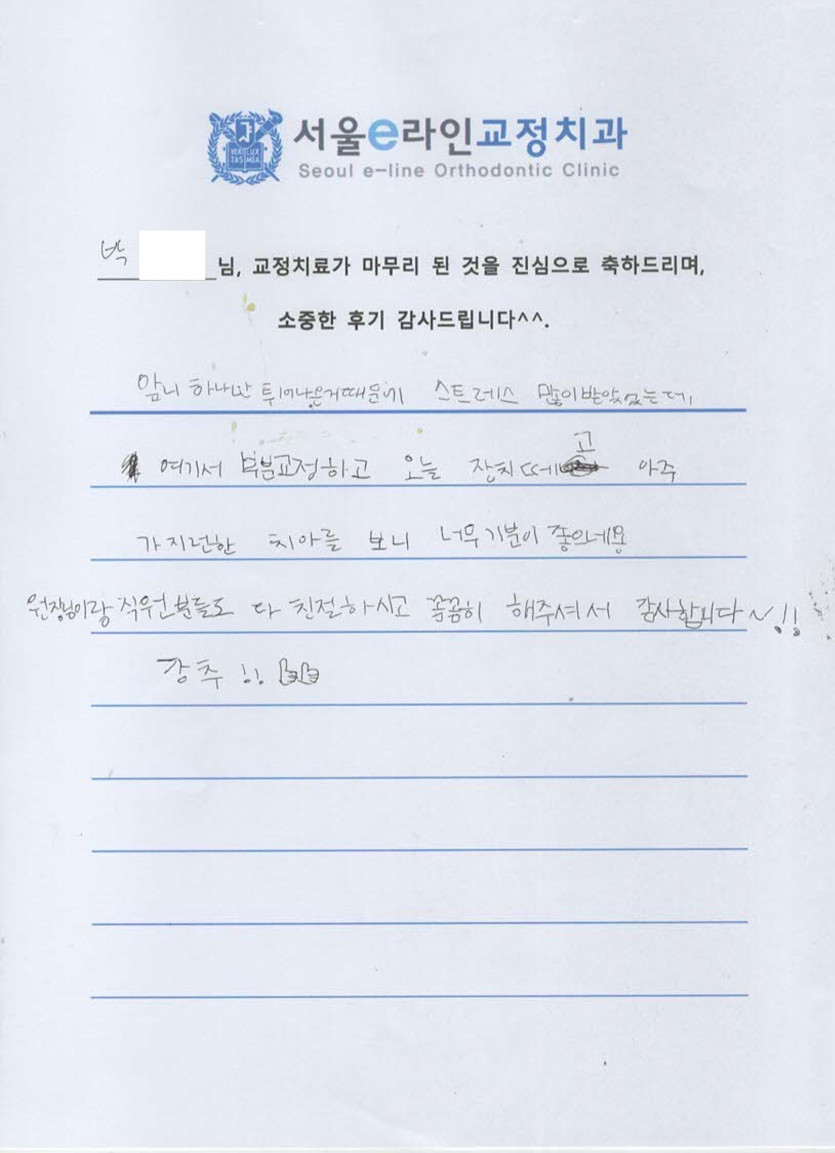 서울e라인교정치과
Seoul e-line Orthodontic Clinic
VERI LUX TAS MEA
박 님, 교정치료가 마무리 된 것을 진심으로 축하드리며,
소중한 후기 감사드립니다^^.
앞니 하나만 튀어나온거때문에 스트레스 많이받았었는데,
여기서 부분교정하고 오늘 장치떼고 아주
가지런한 치아를 보니 너무기분이 좋으네용
원장님이랑 직원분들도 다 친절하시고 꼼꼼히 해주셔서 감사합니다~!!
강추!!